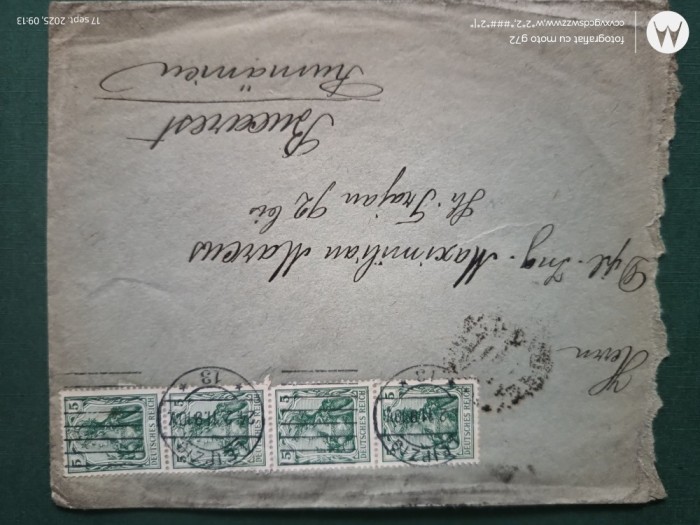 Herrn
Dipl. Ing. Maximilian Marcus
St. Trajan 92 bis
Bucarest
Rumänien
LEIPZIG
13
LEIPZIG
13
DEUTSCHES REICH
5
5
DEUTSCHES REICH
5
5
DEUTSCHES REICH
5
5
DEUTSCHES REICH
5
5
fotografiat cu moto g72
ccvxvgcdswzzwww.w*2*2,*###*2*|*
17 sept. 2025, 09:13